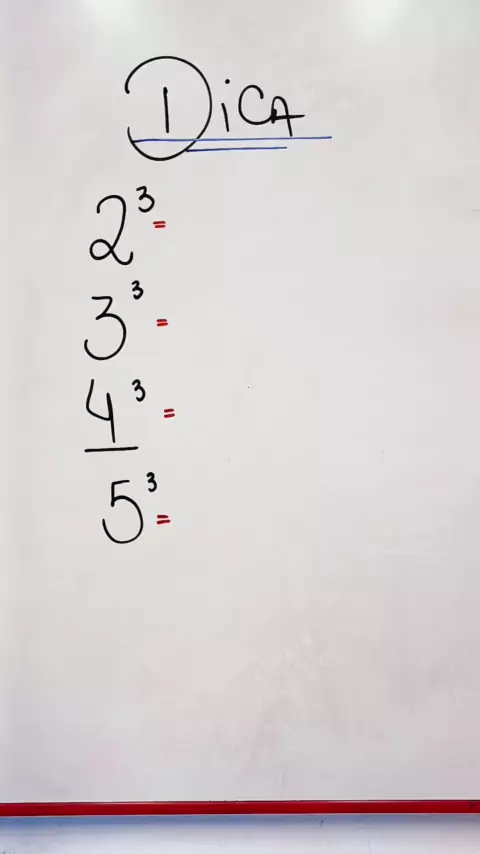 DiCA
2³ =
3³ =
4³ =
5³ =